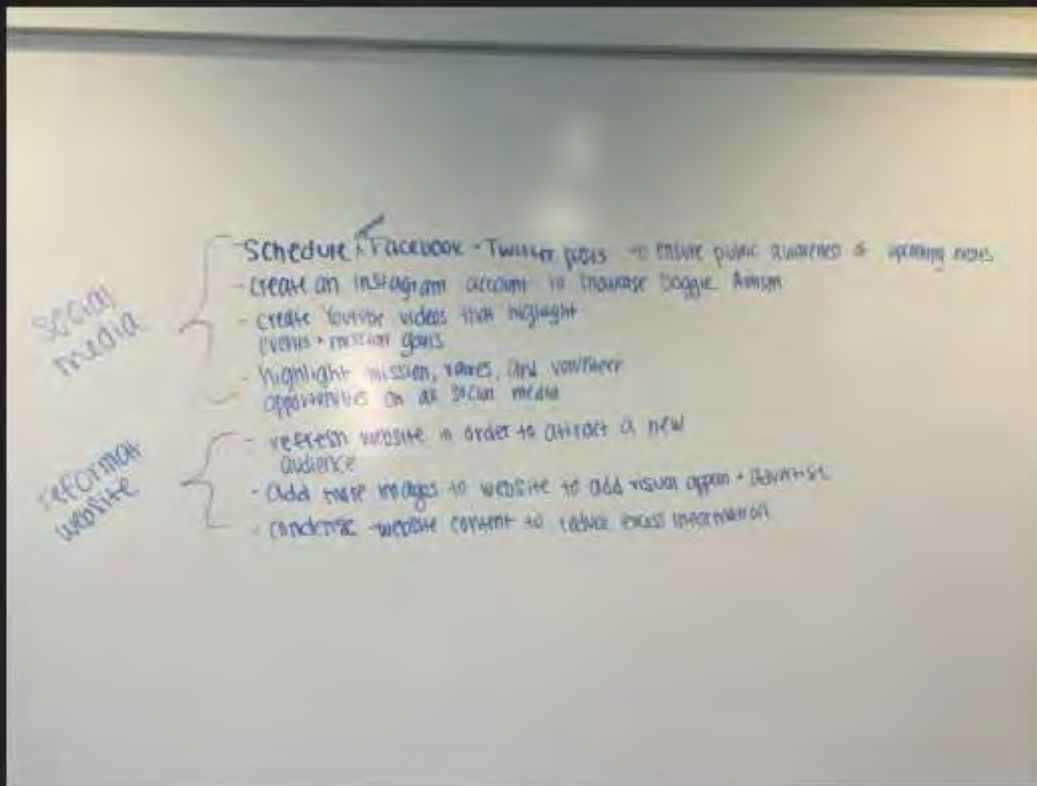 social media
- Schedule Facebook + Twitter posts to ensure public awareness of upcoming
- create an instagram account to showcase Doggie
- create Youtube videos that highlight
events + mission goals
- highlight mission, values, and volunteer
opportunities on all social media
reformat website
- refresh website in order to attract a new
audience
- add more images to website to add visual appeal + advertise
- condense website content to reduce excess information